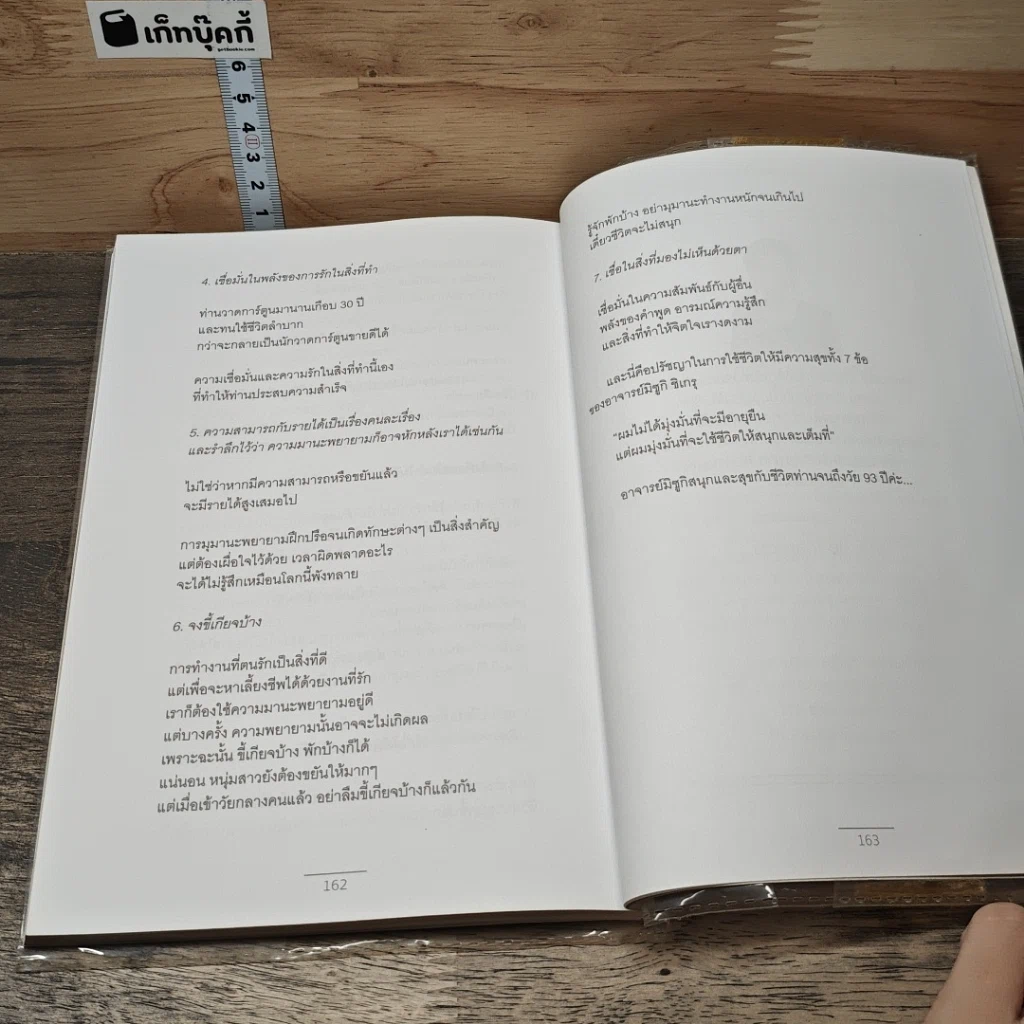 เก็ทบุ๊คกี้
getbookie.com
6
5
4
3
2
1
4. เชื่อมั่นในพลังของการรักในสิ่งที่ทำ
ท่านวาดการ์ตูนมานานเกือบ 30 ปี
และทนใช้ชีวิตลำบาก
กว่าจะกลายเป็นนักวาดการ์ตูนขายดีได้
ความเชื่อมั่นและความรักในสิ่งที่ทำนี้เอง
ที่ทำให้ท่านประสบความสำเร็จ
5. ความสามารถกับรายได้เป็นเรื่องคนละเรื่อง
และรำลึกไว้ว่า ความมานะพยายามก็อาจหักหลังเราได้เช่นกัน
ไม่ใช่ว่าหากมีความสามารถหรือขยันแล้ว
จะมีรายได้สูงเสมอไป
การมุมานะพยายามฝึกปรือจนเกิดทักษะต่างๆ เป็นสิ่งสำคัญ
แต่ต้องเผื่อใจไว้ด้วย เวลาผิดพลาดอะไร
จะได้ไม่รู้สึกเหมือนโลกนี้พังทลาย
6. จงขี้เกียจบ้าง
การทำงานที่ตนรักเป็นสิ่งที่ดี
แต่เพื่อจะหาเลี้ยงชีพได้ด้วยงานที่รัก
เราก็ต้องใช้ความมานะพยายามอยู่ดี
แต่บางครั้ง ความพยายามนั้นอาจจะไม่เกิดผล
เพราะฉะนั้น ขี้เกียจบ้าง พักบ้างก็ได้
แน่นอน หนุ่มสาวยังต้องขยันให้มากๆ
แต่เมื่อเข้าวัยกลางคนแล้ว อย่าลืมขี้เกียจบ้างก็แล้วกัน
162
รู้จักพักบ้าง อย่ามุมานะทำงานหนักจนเกินไป
เดี๋ยวชีวิตจะไม่สนุก
7. เชื่อในสิ่งที่มองไม่เห็นด้วยตา
เชื่อมั่นในความสัมพันธ์กับผู้อื่น
พลังของคำพูด อารมณ์ความรู้สึก
และสิ่งที่ทำให้จิตใจเรางดงาม
และนี่คือปรัชญาในการใช้ชีวิตให้มีความสุขทั้ง 7 ข้อ
ของอาจารย์มิซูกิ ชิเกรุ
“ผมไม่ได้มุ่งมั่นที่จะมีอายุยืน
แต่ผมมุ่งมั่นที่จะใช้ชีวิตให้สนุกและเต็มที่”
อาจารย์มิซูกิสนุกและสุขกับชีวิตท่านจนถึงวัย 93 ปีค่ะ...
163